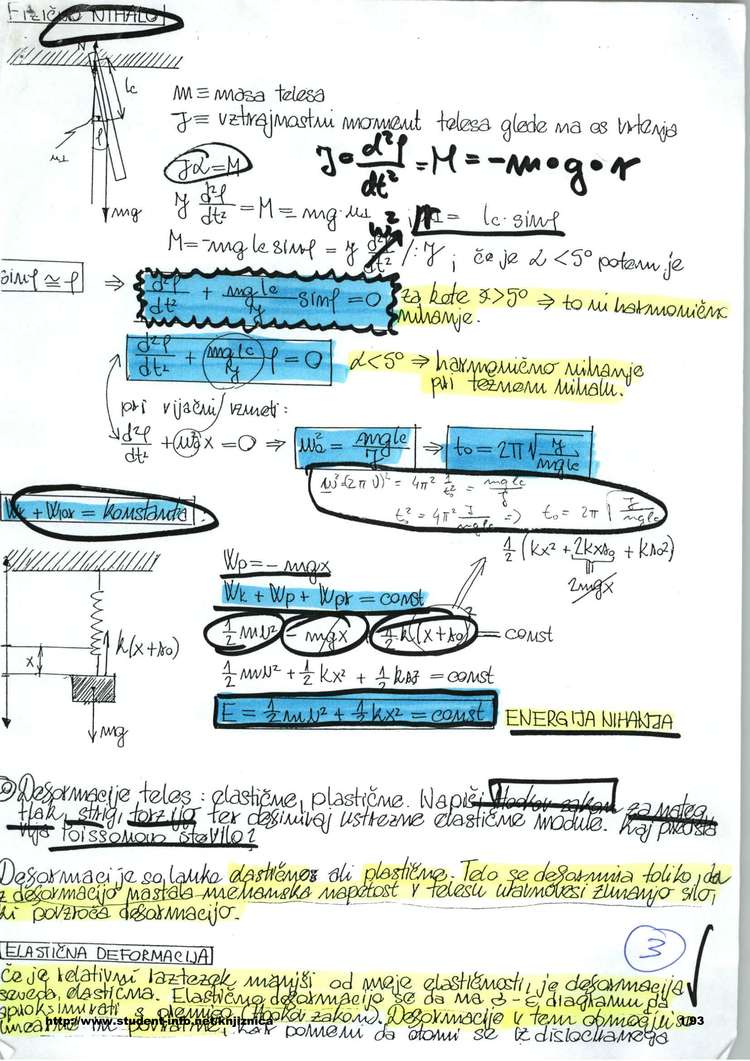 FIZIČNO NIHALO
N
lc
φ
mg
m ≡ masa telesa
J ≡ vztrajnostni moment telesa glede na os vrtenja
Jα = M
J · d²φ/dt² = M = -m·g·r
J d²φ/dt² = M = mg
= lc · sinφ
M = -mg lc sinφ = J d²φ/dt² /: J ; če je α < 5° potem je
sinφ ≅ φ ⇒ d²φ/dt² + mglc/J sinφ = 0
za kote α > 5° ⇒ to ni harmonično
nihanje.
d²φ/dt² + mglc/J φ = 0 α < 5° ⇒ harmonično nihanje
pri težnem nihalu.
pri vijačni vzmeti:
d²φ/dt² + ω₀² x = 0 ⇒ ω₀² = mglc/J ⇒ t₀ = 2π √(J/mglc)
ω² = (2πν)² = 4π² 1/t₀² = mglc/J
t₀² = 4π² J/mglc => t₀ = 2π √(J/mglc)
= konstanta
½ (kx² + 2kxs₀ + ks₀²)
2mgx
Wp = - mgx
Wk + Wp + Wpr = const
½mv² - mgx + ½k(x+s₀)² = const
k(x+s₀)
x
½mv² + ½kx² + ½ks₀² = const
E = ½mv² + ½kx² = const ENERGIJA NIHANJA
mg
Deformacije teles : elastične, plastične. Napiši Hookov zakon za nateg
tlak, strig, torzijo ter definiraj ustrezne elastične module. Kaj
Poissonovo število?
Deformacije so lahko elastične ali plastične. Telo se deformira toliko, da
z deformacijo nastala mehanska napetost v telesu uravnovesi zunanjo silo,
ki povzroča deformacijo.
3
ELASTIČNA DEFORMACIJA
Če je relativni raztezek manjši od meje elastičnosti, je deformacija
seveda elastična. Elastično deformacijo se da na σ-ε diagramu
aproksimirati s premico (Hookov zakon). Deformacije v tem območju so
linearne in kar pomeni da atomi se iz dislociranega
http://www.student-info.net/knjiznica
3/93